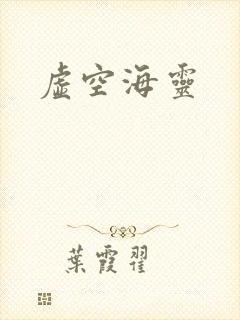 虛空海靈
葉霞翟